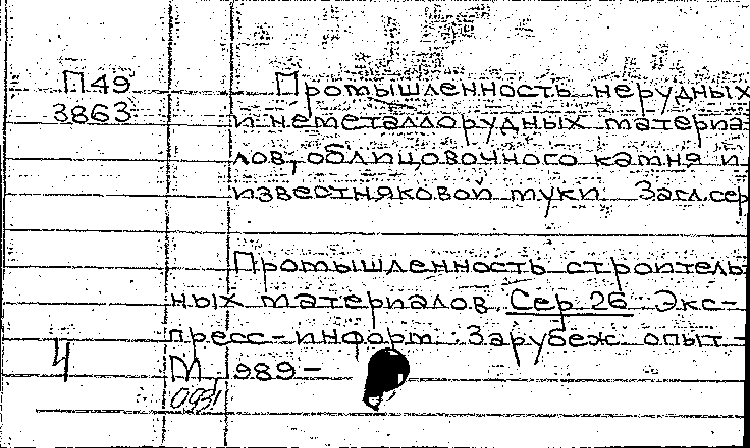 П49
3863
Промышленность нерудных
и неметаллорудных материа
лов, облицовочного камня и
известняковой муки Загл.сер
Промышленность строитель
ных материалов. Сер. 26 Экс-
пресс-информ. Зарубеж. опыт -
Ч
М 989 -
0931